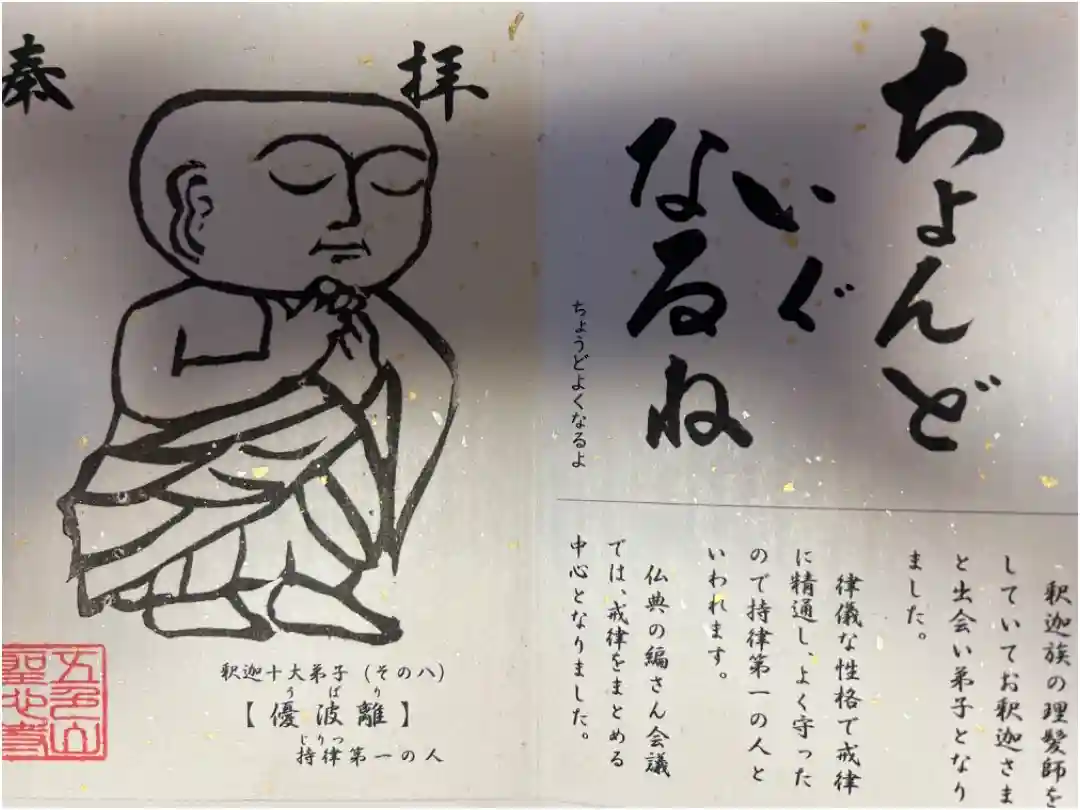 ちょんど
いぐ
なるね
ちょうどよくなるよ
釈迦族の理髪師を
していてお釈迦さま
と出会い弟子となり
ました。
律儀な性格で戒律
に精通し、よく守った
ので持律第一の人と
いわれます。
仏典の編さん会議
では、戒律をまとめる
中心となりました。
奉
拝
釈迦十大弟子(その八)
うばり
【優波離】
じりつ
持律第一の人